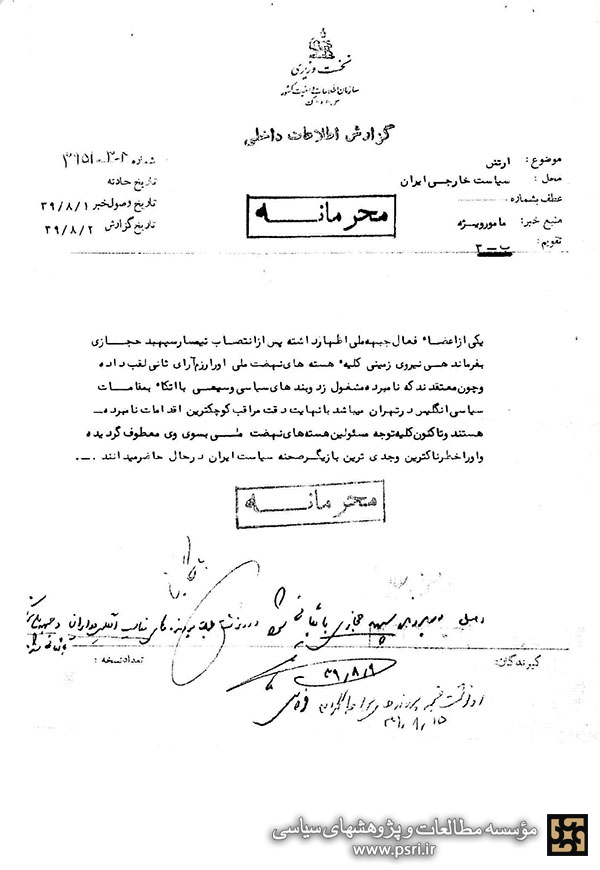 نخست وزیری
سازمان اطلاعات و امنیت کشور
گزارش اطلاعات داخلی
موضوع : ارتش
شماره
محل : سیاست خارجی ایران
تاریخ حادثه
عطف بشماره
تاریخ وصول خبر ۳۹/۸/۱
منبع خبر: مامور ویژه
تاریخ گزارش ۳۹/۸/۲
تقویم : ب - ۳
محرمانه
یکی از اعضاء فعال جبهه ملی اظهار داشته پس از انتصاب تیمسار سپهبد حجازی
بفرماندهی نیروی زمینی کلیه هسته های نهضت ملی او را رزم آرای ثانی لقب داده
و چون معتقدند که نامبرده مشغول زد و بند های سیاسی وسیعی با اتکاء بمقامات
سیاسی انگلیس در تهران میباشد با نهایت دقت مراقب کوچکترین اقدامات نامبرده
هستند و تاکنون کلیه توجه مسئولین هسته های نهضت ملی بسوی وی معطوف گردیده
و او را خطرناکترین و جدی ترین بازیگر صحنه سیاست ایران در حال حاضر میدانند .ـ.
محرمانه
اصل در پرونده سپهبد حجازی بایگانی
گیرندگان:
تعداد نسخه :
۳۹/۸/۹
۳۹/۸/۱۵
مؤسسه مطالعات و پژوهشهای سیاسی
www.psri.ir